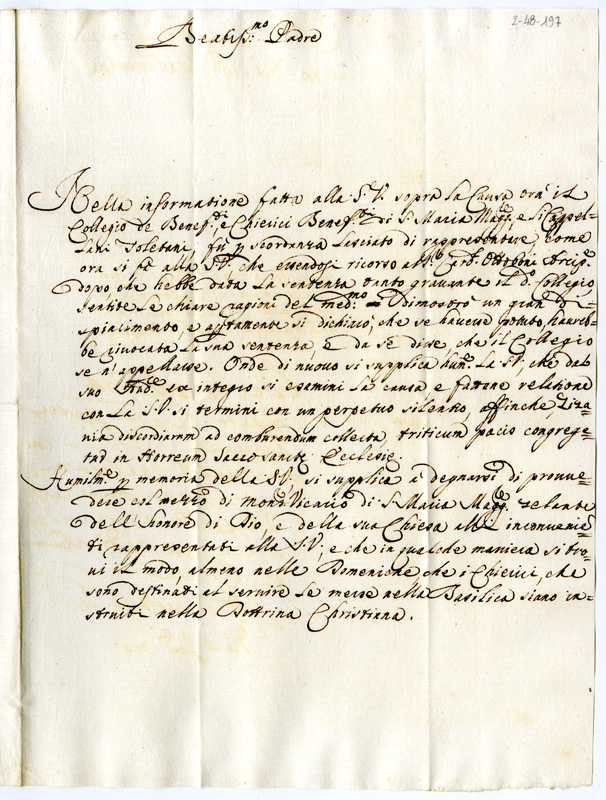 2-48-197
Beatiss:mo Padre
Nella informatione fatta alla S.V. sopra la Causa ora il
Collegio de Benef:ti e Chierici Benef:ti di S. Maria Magg:re e li Cappel-
lani Toletani, fù p scordanza lasciato di rappresentare, come
ora si fà alla S.V., che essendosi ricorso al S.r Card. Ottoboni Arcip.
dopo che hebbe data la sentenza tanto gravante il d.o Collegio
sentite le chiare ragioni del med:mo dimostrò un gran di-
spiacimento, e apertamente si dichiarò, che se havesse potuto, haureb-
be rivocata la sua sentenza, e da se disse che il Collegio
se n'appellasse. Onde di nuovo si supplica hum.te la S.V., che dal
suo Aud.re ex integro si esamini la causa e fattane relatione
con la S.V. si termini con un perpetuo silentio, affinche, Ziza-
nia discordiarum ad comburendum collecta, triticum pacis congrege-
tur in Horreum Sacrosanctę Ecclesię.
Humilm.te p memoria della S.V., si supplica à degnarsi di provve-
dere col mezzo di mons. Vicario di S. Maria Magg.re zelante
dell'honore di Dio, e della sua Chiesa alli inconvenie-
ti rappresentati alla S.V., e che in qualche maniera si tro-
vi il modo, almeno nelle Domeniche, che i Chierici, che
sono destinati al servire le messe nella Basilica siano in-
struiti nella Dottrina Christiana.